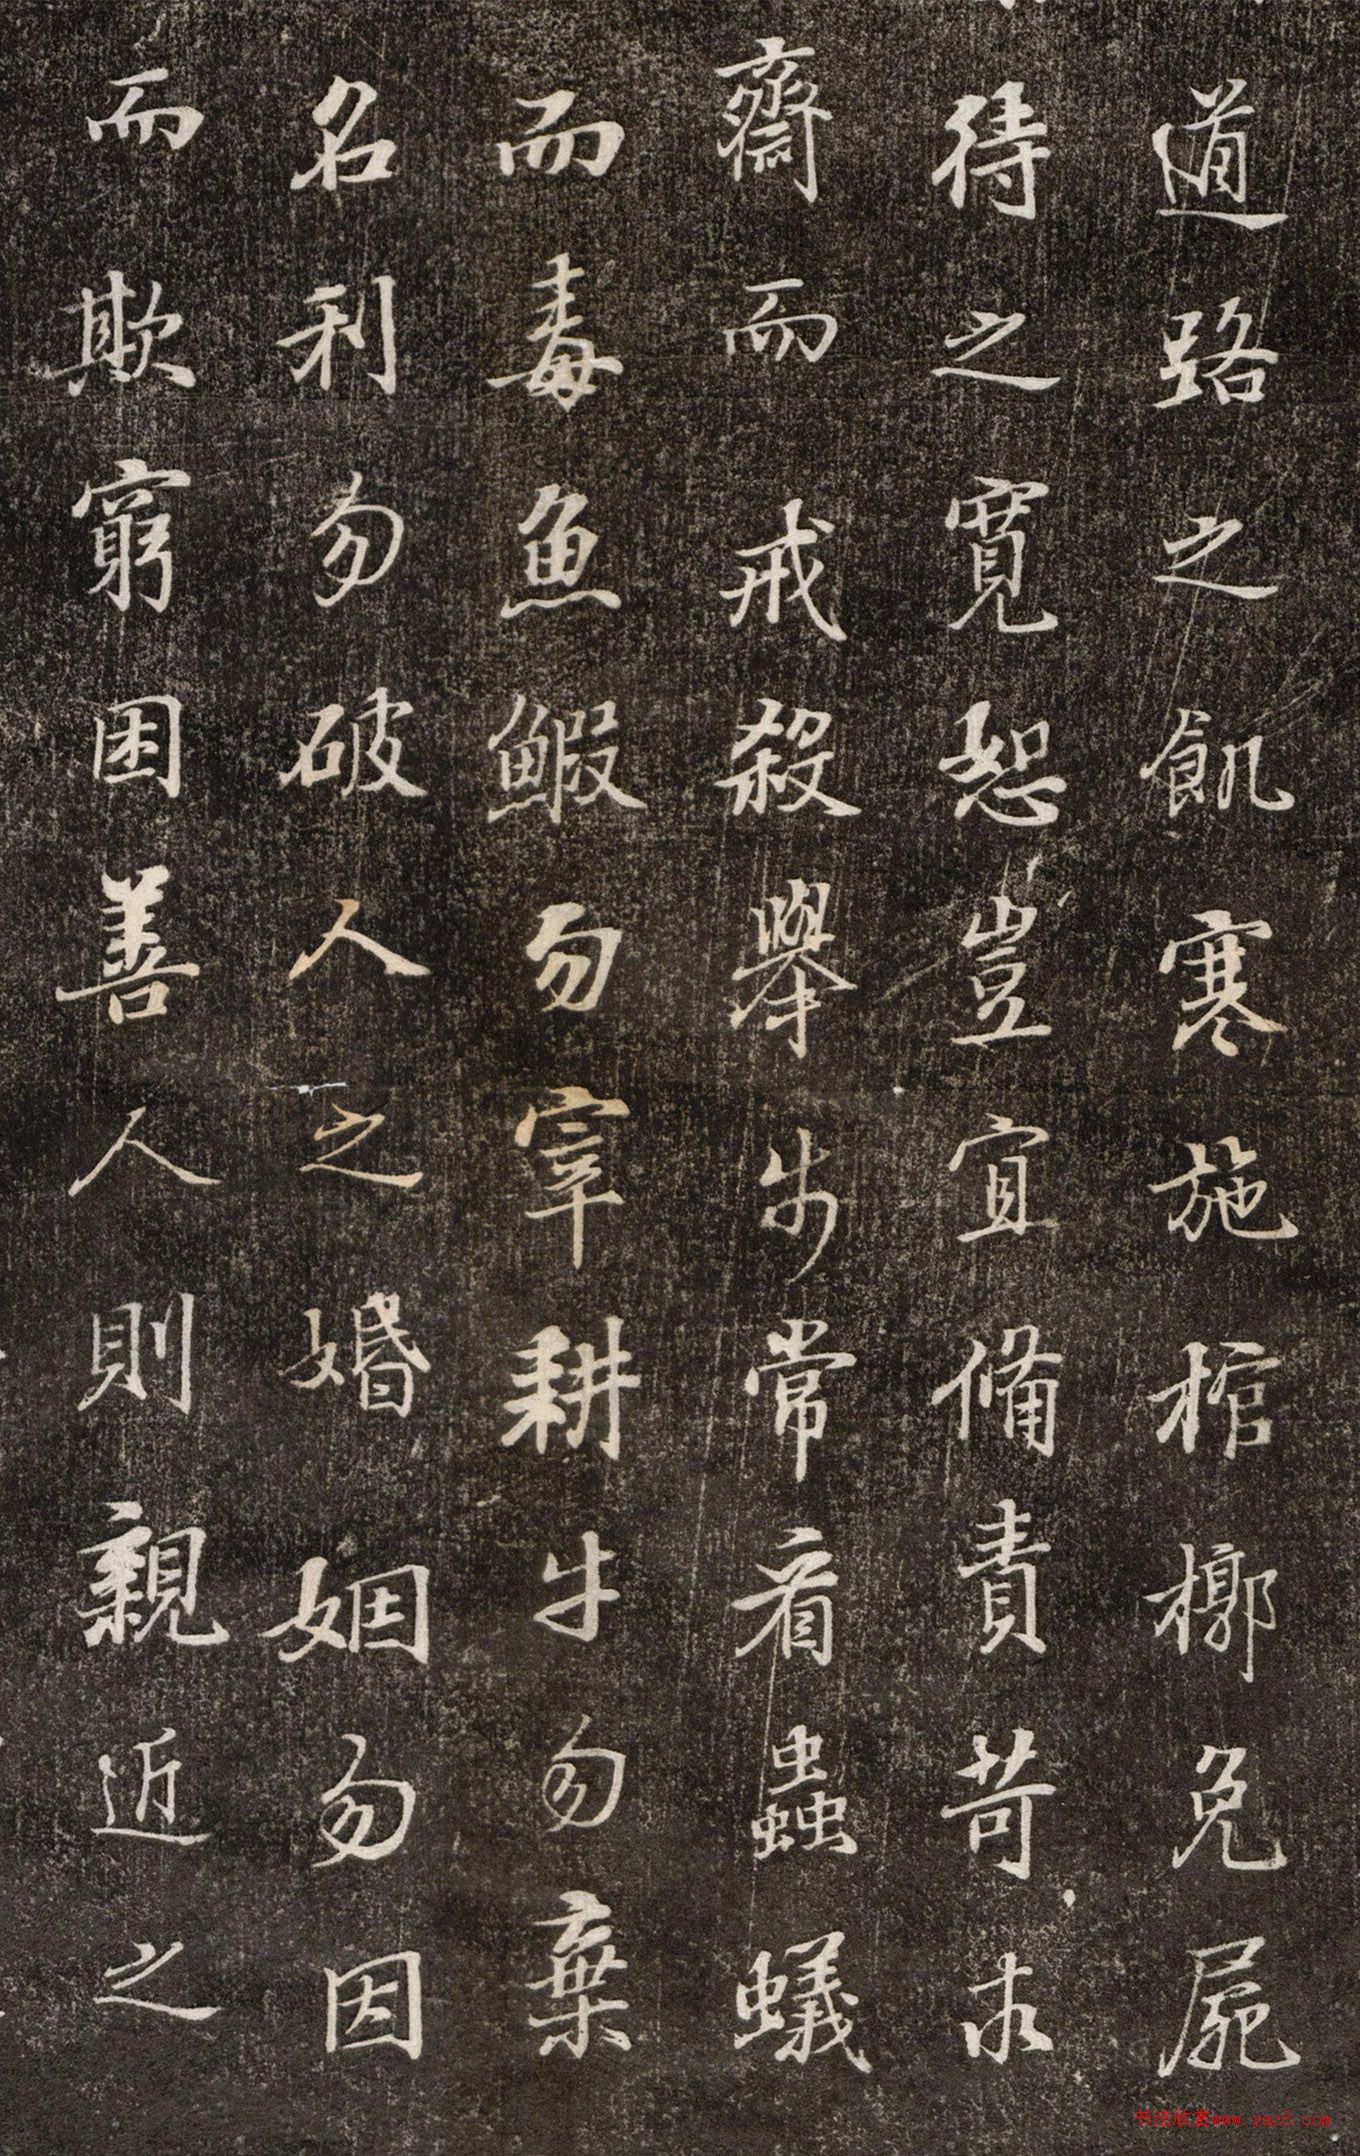 道路之飢寒施棺槨免屍
待之寬恕豈宜備責苛求
齋而戒殺舉步常看蟲蟻
而毒魚鰕勿宰耕牛勿棄
名利勿破人之婚姻勿因
而欺窮困善人則親近之
书法欣赏www.yac8.com